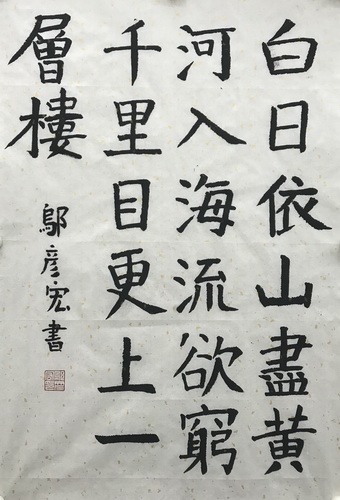 白日依山盡黃
河入海流欲窮
千里目更上一
層樓
鄔彦宏書